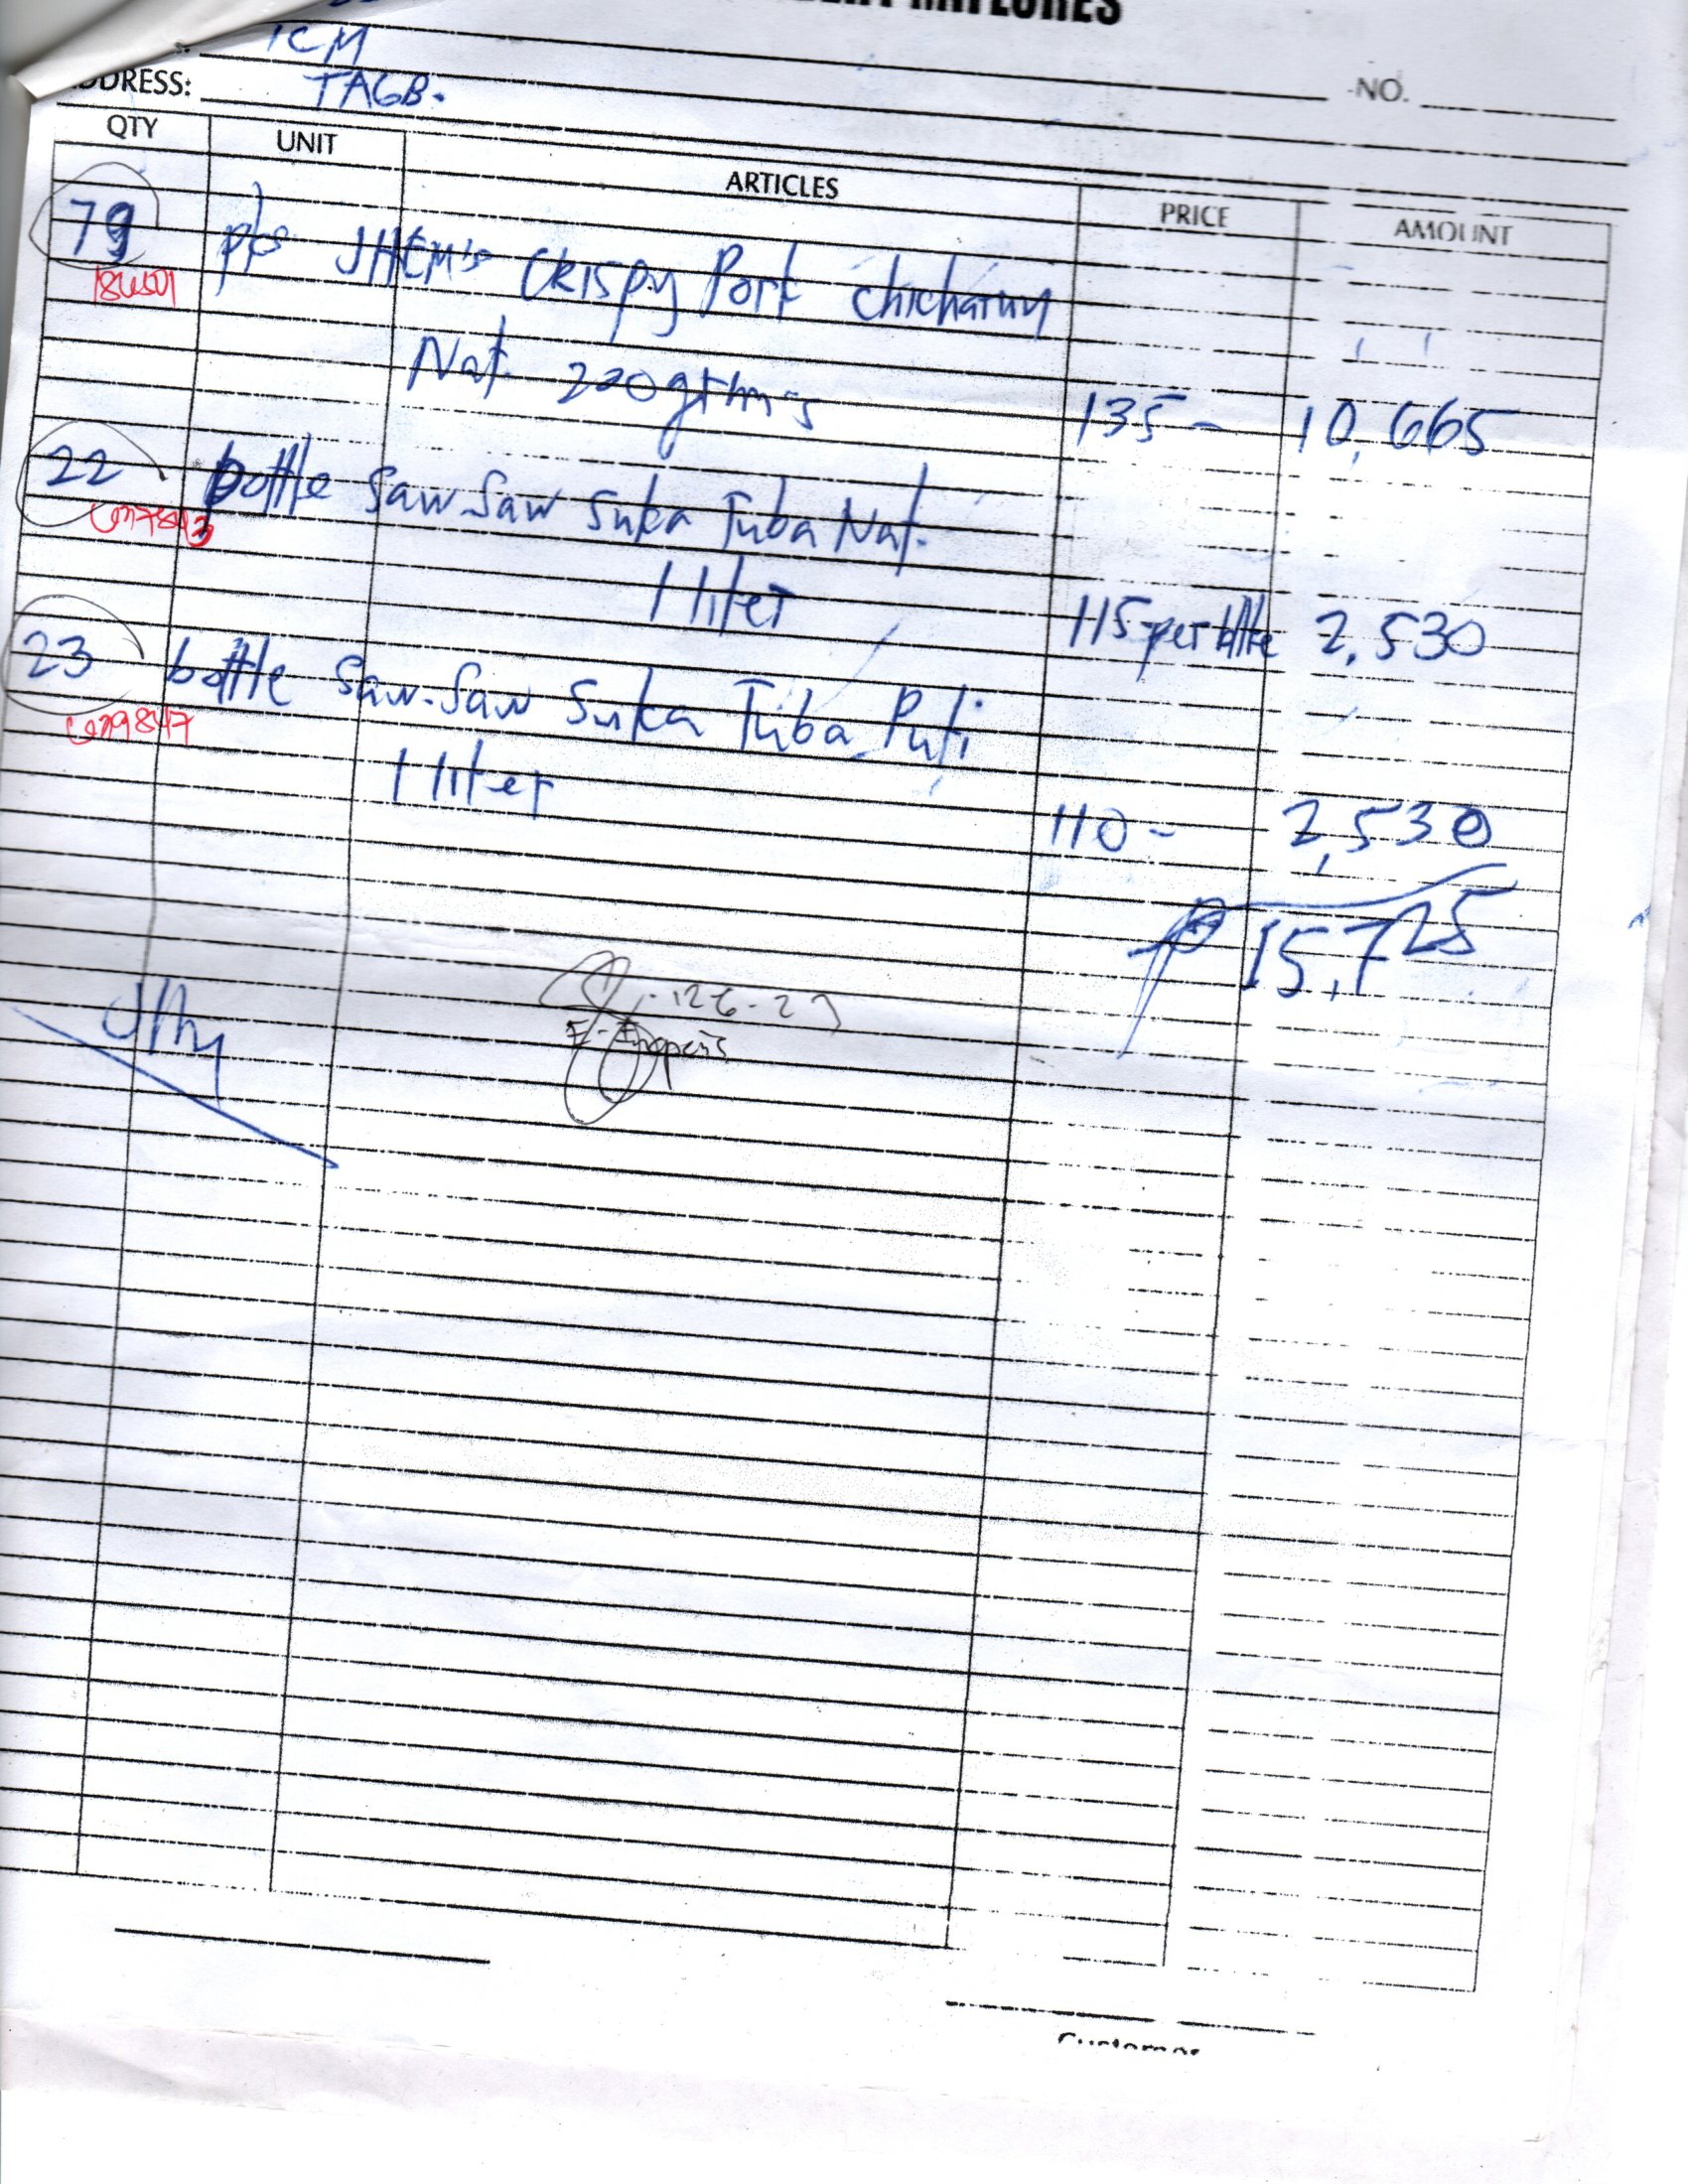 ICM
NO.
ADDRESS: TAGB.
QTY UNIT ARTICLES PRICE AMOUNT
79 pks JHEM's CRISPy Pork chicharuy
18451
Nat. 220grtm's 135 - 10,665
22 bottle Saw-Saw Suka Tuba Nat.
1 liter 115-per bttle 2,530
23 bottle Saw-Saw Suka Tuba Puti
1 liter 110 - 2,530
₱ 15,725